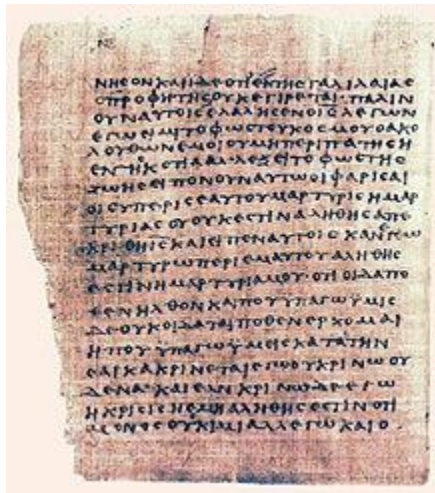 ΝΗϹΟΝ ΚΑΙ ΙΔΕ ΟΤΙ ΕΚ ΤΗϹ ΓΑΛΙΛΑΙΑϹ
Ο ΠΡΟΦΗΤΗϹ ΟΥΚ ΕΓΙΡΕΤΑΙ· ΠΑΛΙΝ
ΟΥΝ ΑΥΤΟΙϹ ΕΛΑΛΗϹΕΝ Ο ΙϹ ΛΕΓΩΝ
ΕΓΩ ΕΙΜΙ ΤΟ ΦΩϹ ΤΟΥ ΚΟϹΜΟΥ Ο ΑΚΟ
ΛΟΥΘΩΝ ΕΜΟΙ ΟΥ ΜΗ ΠΕΡΙΠΑΤΗϹΗ
ΕΝ ΤΗ ϹΚΟΤΙΑ ΑΛΛ ΕΞΕΙ ΤΟ ΦΩϹ ΤΗϹ
ΖΩΗϹ ΕΙΠΟΝ ΟΥΝ ΑΥΤΩ ΟΙ ΦΑΡΙϹΑΙ
ΟΙ ϹΥ ΠΕΡΙ ϹΕΑΥΤΟΥ ΜΑΡΤΥΡΙϹ Η ΜΑΡ
ΤΥΡΙΑ ϹΟΥ ΟΥΚ ΕϹΤΙΝ ΑΛΗΘΗϹ ΑΠΕ
ΚΡΙΘΗ ΙϹ ΚΑΙ ΕΙΠΕΝ ΑΥΤΟΙϹ ΚΑΝ ΕΓΩ
ΜΑΡΤΥΡΩ ΠΕΡΙ ΕΜΑΥΤΟΥ ΑΛΗΘΗϹ
ΕϹΤΙΝ Η ΜΑΡΤΥΡΙΑ ΜΟΥ ΟΤΙ ΟΙΔΑ ΠΟ
ΘΕΝ ΗΛΘΟΝ ΚΑΙ ΠΟΥ ΥΠΑΓΩ ΥΜΙϹ
ΔΕ ΟΥΚ ΟΙΔΑΤΑΙ ΠΟΘΕΝ ΕΡΧΟΜΑΙ
Η ΠΟΥ ΥΠΑΓΩ ΥΜΕΙϹ ΚΑΤΑ ΤΗΝ
ϹΑΡΚΑ ΚΡΙΝΕΤΑΙ ΕΓΩ ΟΥ ΚΡΙΝΩ ΟΥ
ΔΕΝΑ· ΚΑΙ ΕΑΝ ΚΡΙΝΩ ΔΕ ΕΓΩ
Η ΚΡΙϹΙϹ Η ΕΜΗ ΑΛΗΘΗϹ ΕϹΤΙΝ ΟΤΙ
ΜΟΝΟϹ ΟΥΚ ΙΜΙ ΑΛΛ ΕΓΩ ΚΑΙ Ο